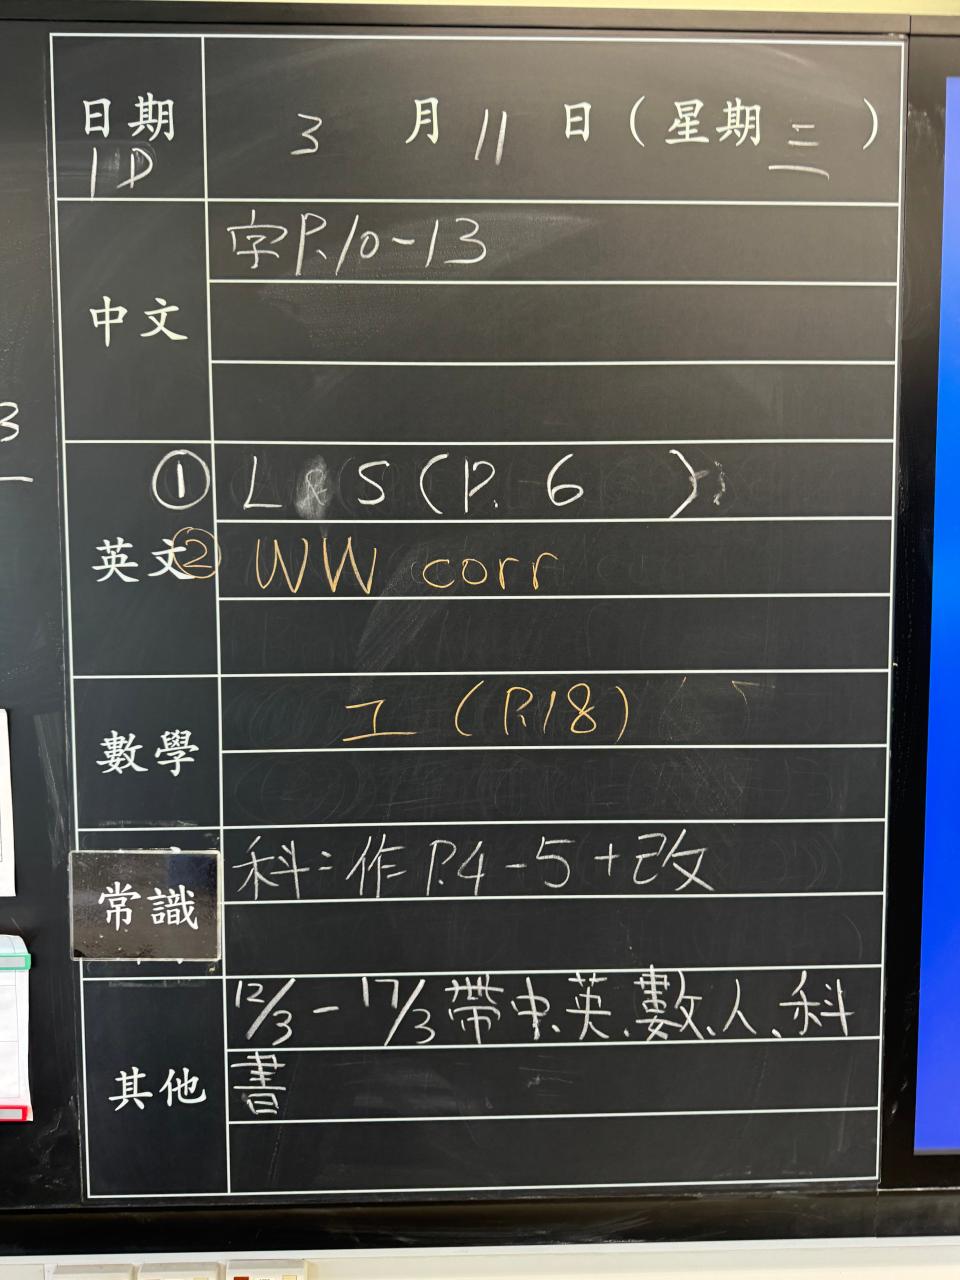 日期 3月11日(星期三)
1D
中文 字P.10-13
英文 ① L & S (P. 6 )
② WW corr
數學 工 (P.18)
常識 科:作P.4-5+改
其他 12/3-17/3帶中、英、數、人、科
書
3